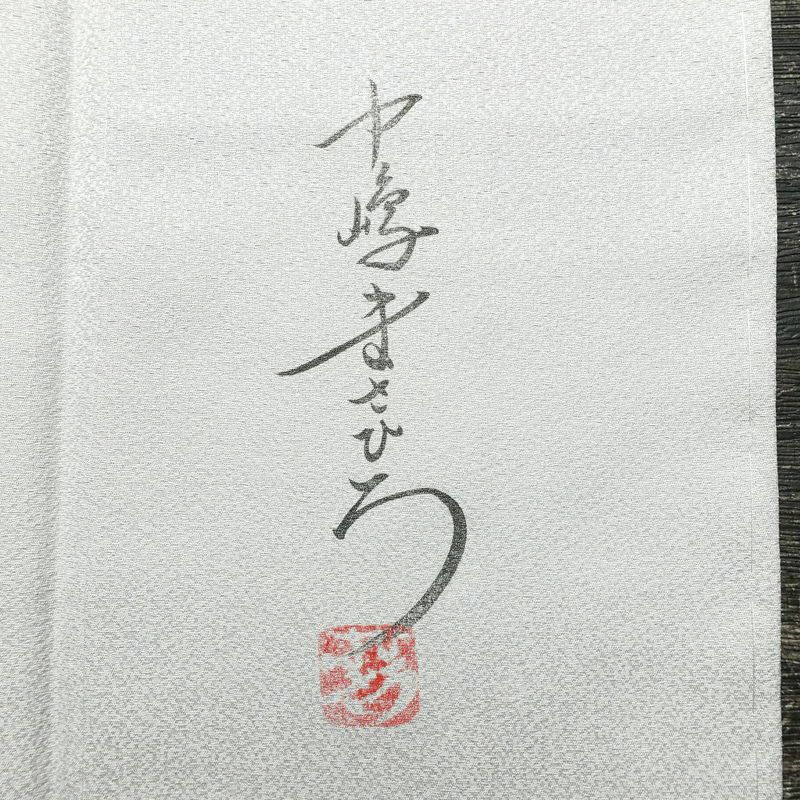 中嶋まさひろ